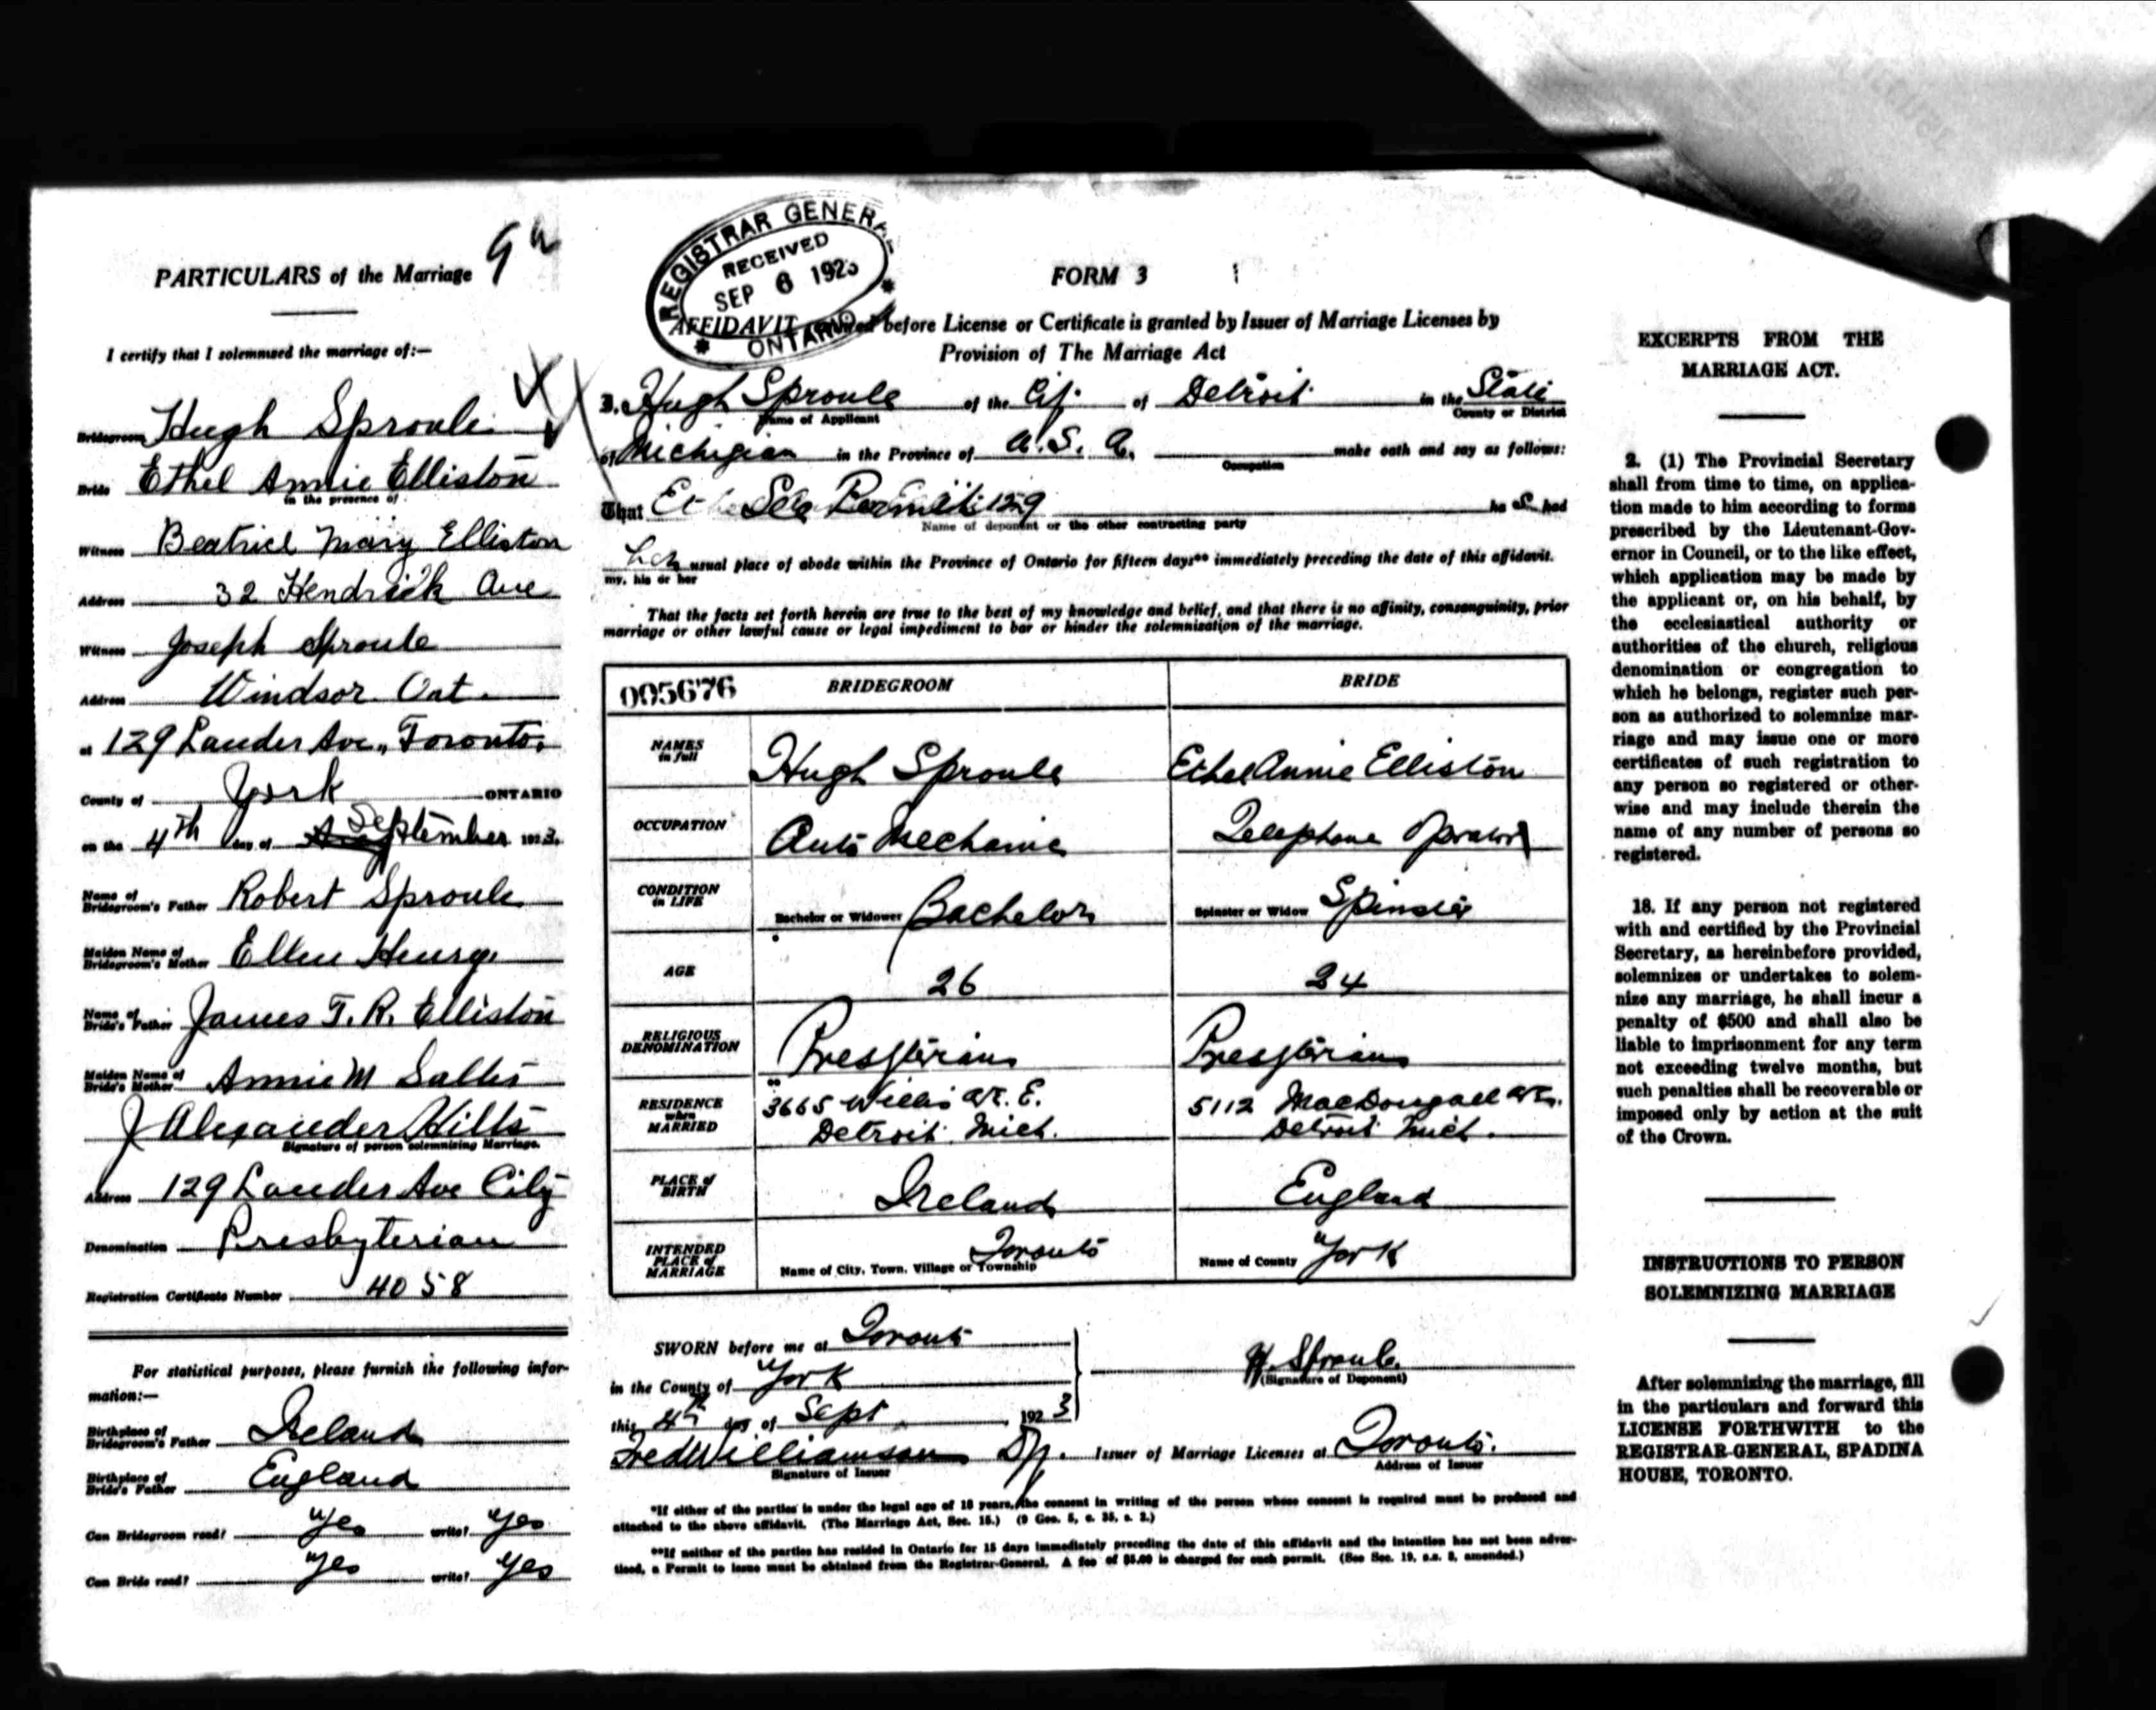 PARTICULARS of the Marriage
I certify that I solemnized the marriage of:—
Bridegroom Hugh Sproule
Bride Ethel Annie Elliston
in the presence of
Witness Beatrice Mary Elliston
Address 32 Hendrick Ave
Witness Joseph Sproule
Address Windsor Ont.
at 129 Lauder Ave., Toronto,
County of York ONTARIO
on the 4th day of September 1923.
Name of Bridegroom's Father Robert Sproule
Maiden Name of Bridegroom's Mother Ellen Henry
Name of Bride's Father James T. R. Elliston
Maiden Name of Bride's Mother Annie M
J Alexander
Signature of person solemnizing Marriage.
Address 129 Lauder Ave City
Denomination Presbyterian
Registration Certificate Number 4058
For statistical purposes, please furnish the following infor-
mation:—
Birthplace of Bridegroom's Father Ireland
Birthplace of Bride's Father England
Can Bridegroom read? Yes write? Yes
Can Bride read? Yes write? Yes
REGISTRAR GENERAL
RECEIVED
SEP 6 1923
ONTARIO
FORM 3
AFFIDAVIT before License or Certificate is granted by Issuer of Marriage Licenses by
Provision of The Marriage Act
I, Hugh Sproule of the City of Detroit in the State
Name of Applicant County or District
of Michigan in the Province of U. S. A. make oath and say as follows:
Occupation
That See Permit 129 he s had
Name of deponent or the other contracting party
her usual place of abode within the Province of Ontario for fifteen days** immediately preceding the date of this affidavit.
my, his or her
That the facts set forth herein are true to the best of my knowledge and belief, and that there is no affinity, consanguinity, prior
marriage or other lawful cause or legal impediment to bar or hinder the solemnization of the marriage.
005676 BRIDEGROOM BRIDE
NAMES in full Hugh Sproule Ethel Annie Elliston
OCCUPATION Auto Mechanic Telephone Operator
CONDITION in LIFE Bachelor or Widower Bachelor Spinster or Widow Spinster
AGE 26 24
RELIGIOUS DENOMINATION Presyterian Presyterian
RESIDENCE when MARRIED 3665 Willis av. E. 5112 MacDougall av.
Detroit. Mich. Detroit Mich.
PLACE of BIRTH Ireland England
INTENDED PLACE of MARRIAGE Name of City, Town, Village or Township Toronto Name of County York
SWORN before me at Toronto
in the County of York
this 4th day of Sept 1923
H. Sproule
(Signature of Deponent)
Fred Williamson Dy. Issuer of Marriage Licenses at Toronto.
Signature of Issuer Address of Issuer
*If either of the parties is under the legal age of 18 years, the consent in writing of the person whose consent is required must be produced and
attached to the above affidavit. (The Marriage Act, Sec. 15.) (9 Geo. 5, c. 35, s. 2.)
**If neither of the parties has resided in Ontario for 15 days immediately preceding the date of this affidavit and the intention has not been adver-
tised, a Permit to issue must be obtained from the Registrar-General. A fee of $5.00 is charged for such permit. (See Sec. 19, s.s. 3, amended.)
EXCERPTS FROM THE
MARRIAGE ACT.
2. (1) The Provincial Secretary
shall from time to time, on applica-
tion made to him according to forms
prescribed by the Lieutenant-Gov-
ernor in Council, or to the like effect,
which application may be made by
the applicant or, on his behalf, by
the ecclesiastical authority or
authorities of the church, religious
denomination or congregation to
which he belongs, register such per-
son as authorized to solemnize mar-
riage and may issue one or more
certificates of such registration to
any person so registered or other-
wise and may include therein the
name of any number of persons so
registered.
18. If any person not registered
with and certified by the Provincial
Secretary, as hereinbefore provided,
solemnizes or undertakes to solem-
nize any marriage, he shall incur a
penalty of $500 and shall also be
liable to imprisonment for any term
not exceeding twelve months, but
such penalties shall be recoverable or
imposed only by action at the suit
of the Crown.
INSTRUCTIONS TO PERSON
SOLEMNIZING MARRIAGE
After solemnizing the marriage, fill
in the particulars and forward this
LICENSE FORTHWITH to the
REGISTRAR-GENERAL, SPADINA
HOUSE, TORONTO.